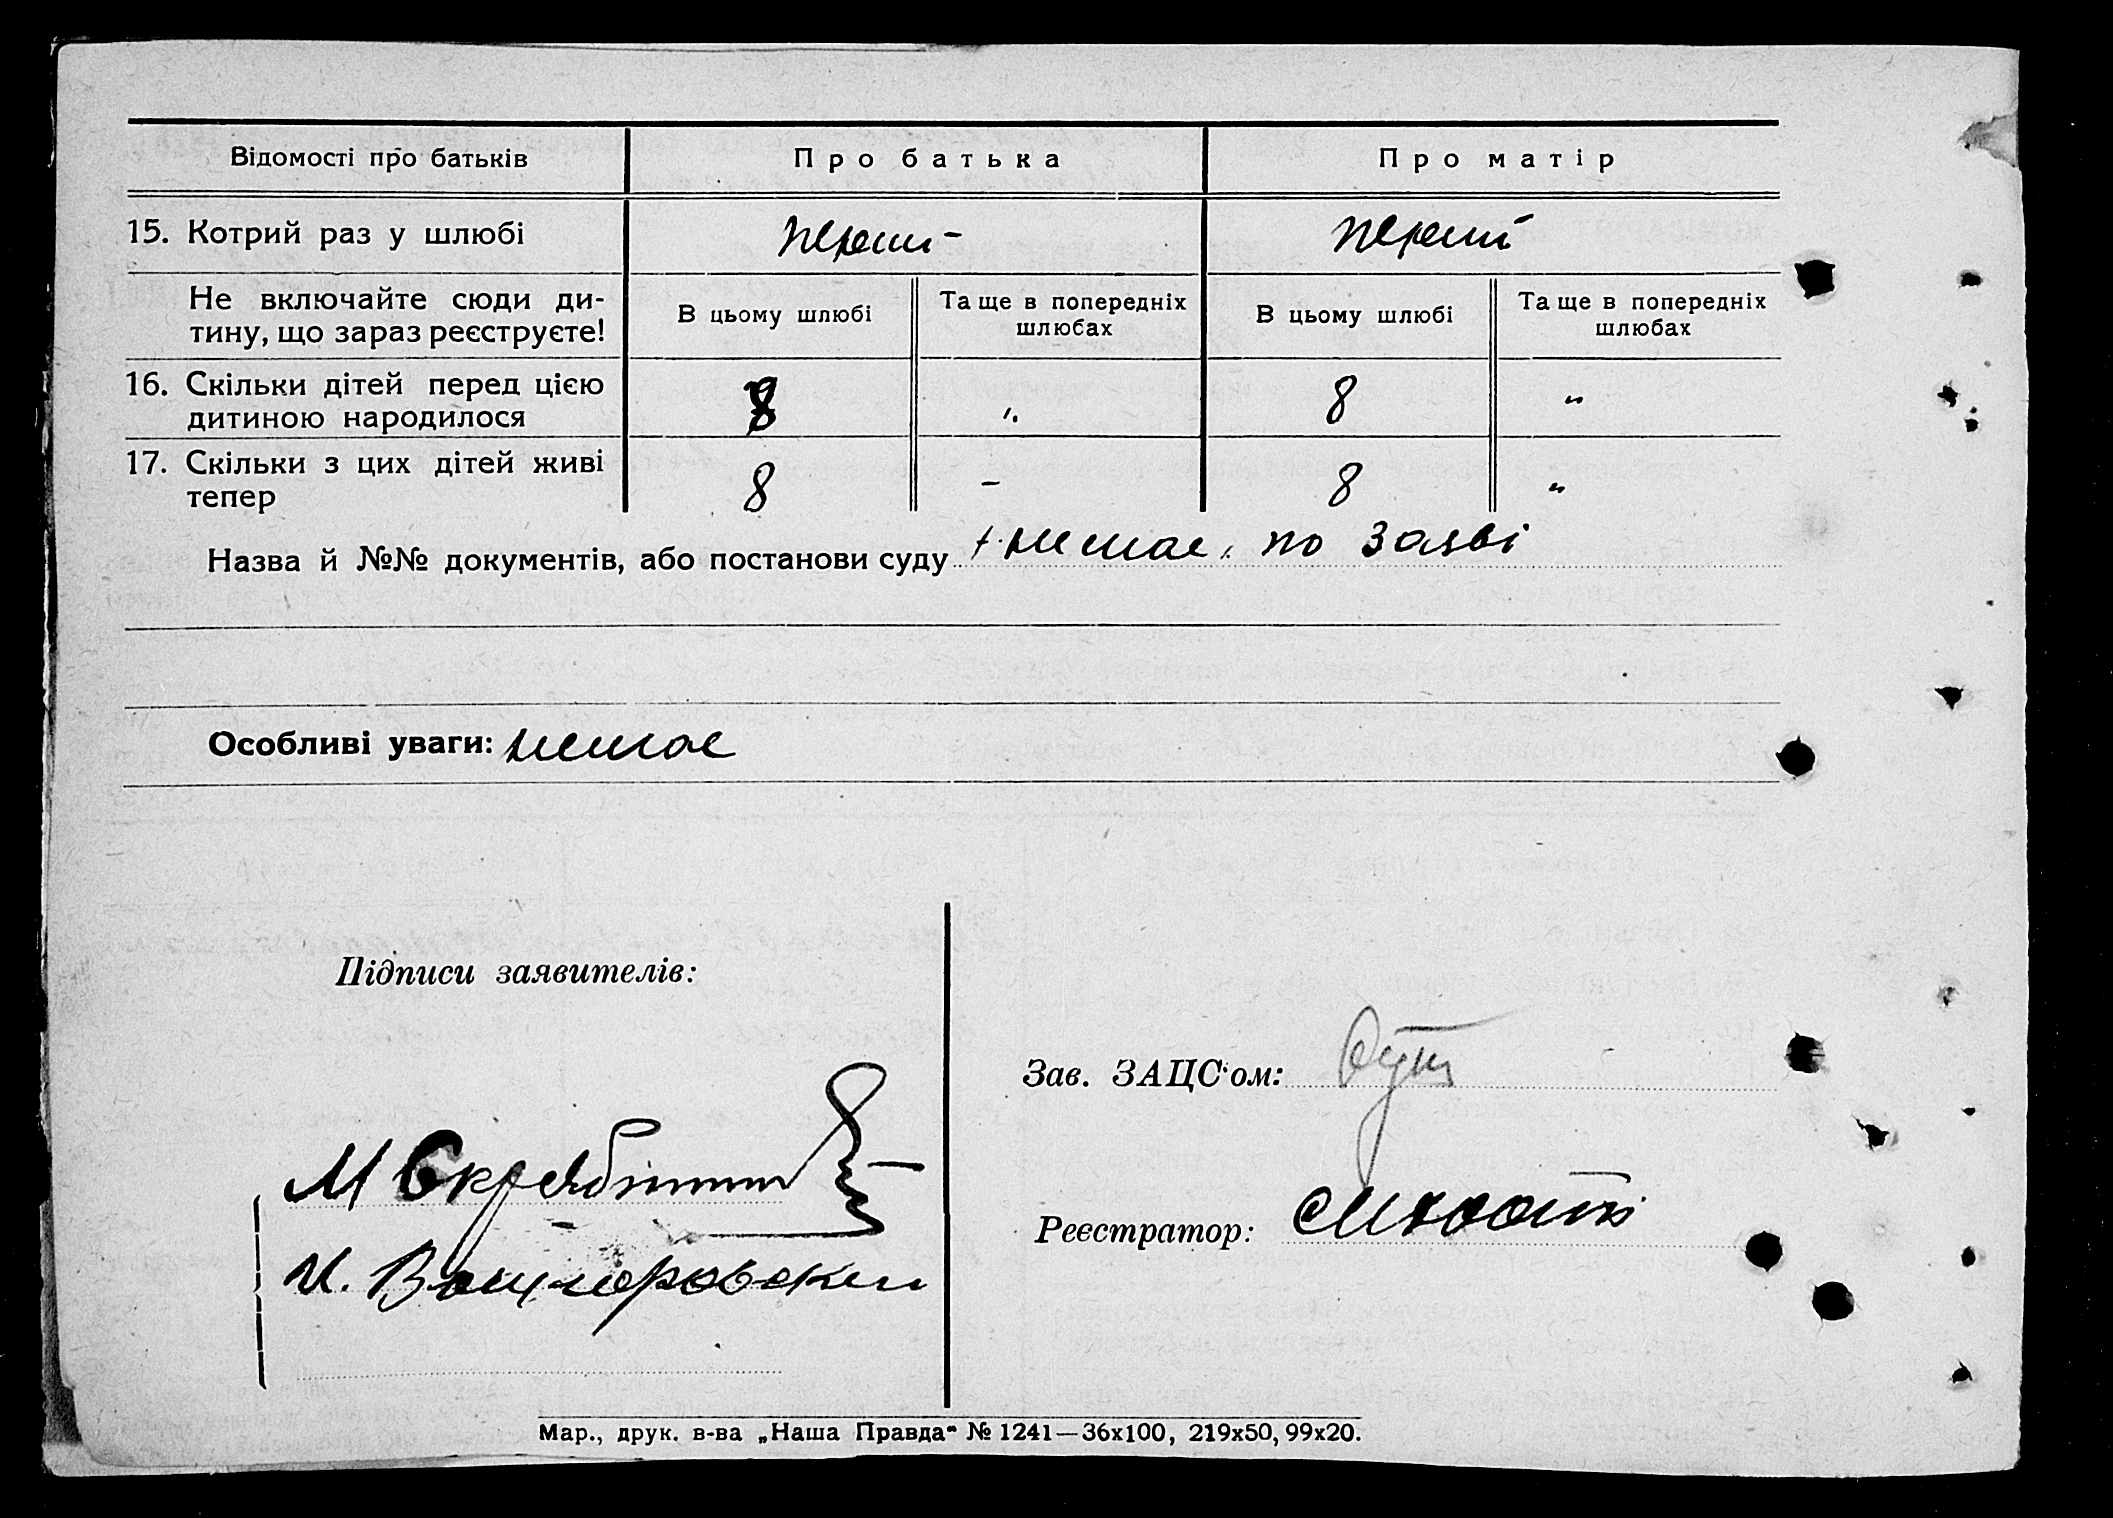 Відомості про батьків Про батька Про матір
15. Котрий раз у шлюбі перший перший
Не включайте сюди ди-
тину, що зараз реєструєте!
В цьому шлюбі
Та ще в попередніх
шлюбах
В цьому шлюбі
Та ще в попередніх
шлюбах
16. Скільки дітей перед цією
дитиною народилося
8 „ 8 „
17. Скільки з цих дітей живі
тепер
8 – 8 „
Назва й №№ документів, або постанови суду немає, по заяві
Особливі уваги: немає
Підписи заявителів:
Зав. ЗАЦС'ом:
М
Реєстратор:
И.
Мар., друк. в-ва „Наша Правда" № 1241—36х100, 219х50, 99х20.